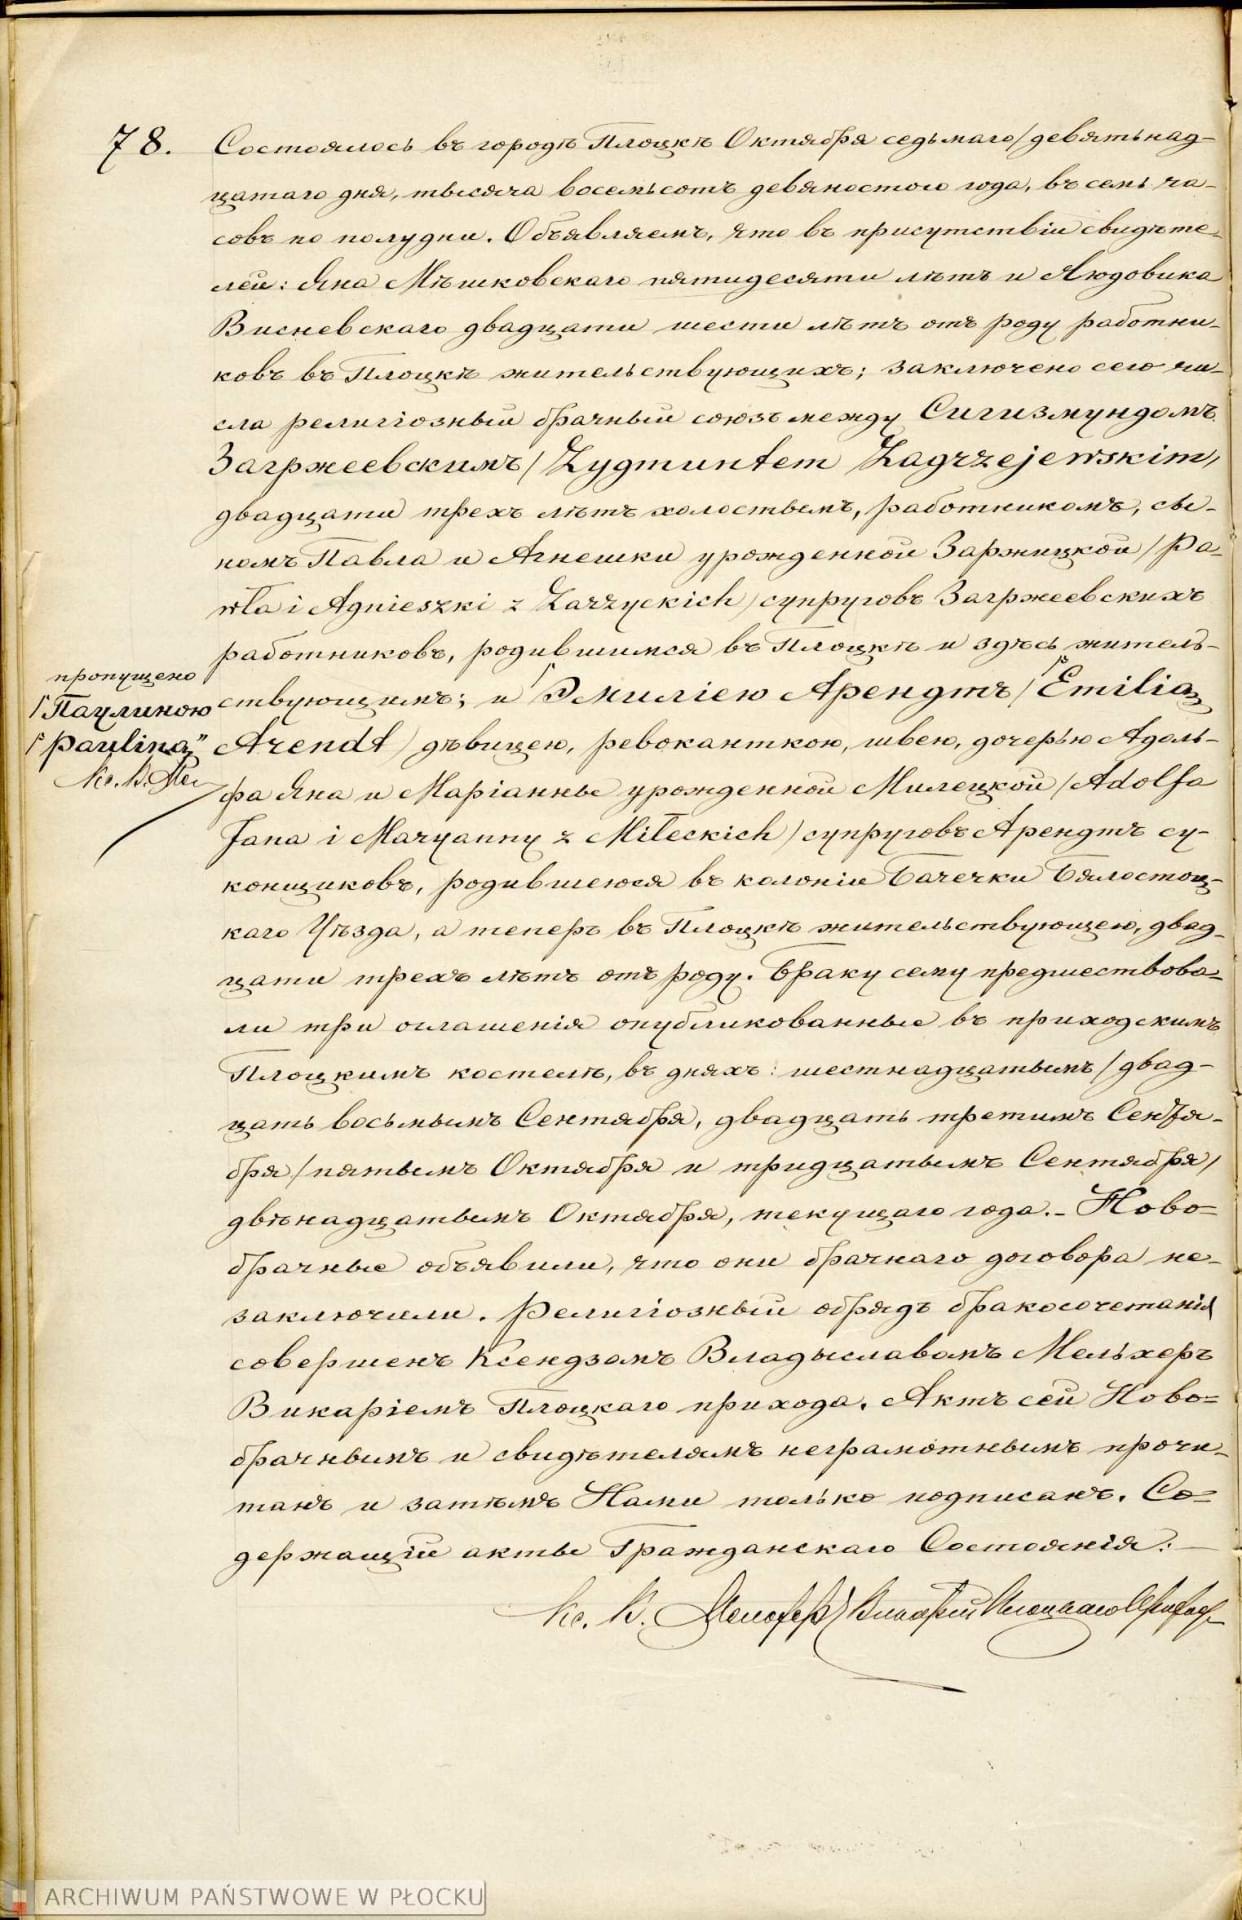 78. Состоялось въ городѣ Плоцкѣ Октября седьмаго/девятьнад-
цатаго дня, тысяча восемьсотъ девяностого года, въ семь ча-
совъ по полудни. Объявляемъ, что въ присутствіи свидѣте-
лей: Яна Мѣшковскаго пятидесяти лѣтъ и Людовика
Висневскаго двадцати шести лѣтъ отъ роду работни-
ковъ въ Плоцкѣ жительствующихъ; заключено сего чи-
сла религіозный брачный союзъ между Сигизмундомъ
Загржеевскимъ/Zygmuntem Zagrzejewskim/
двадцати трехъ лѣтъ холостымъ, работникомъ, сы-
номъ Павла и Агнешки урожденной Заржицкой/Pa-
wła i Agnieszki z Zarzyckich/супруговъ Загржеевскихъ
работниковъ, родившимся въ Плоцкѣ и здѣсь житель-
пропущено
ствующимъ; и Эмиліею Арендтъ/Emilią
"Паулиною
Arendt/дѣвицею, ревоканткою, швею, дочерью Адоль-
"Pauliną"
фа Яна и Маріанны урожденной Милецкой/Adolfa
Кс. В. Мел
Jana i Maryanny z Miłeckich/супруговъ Арендтъ су-
конщиковъ, родившеюся въ колоніи Бачечки Бялостоц-
каго Уѣзда, а теперь въ Плоцкѣ жительствующею, двад-
цати трехъ лѣтъ отъ роду. Браку сему предшествова-
ли три оглашенія опубликованные въ приходскимъ
Плоцкимъ костелѣ, въ дняхъ: шестнадцатымъ/двад-
цать восьмымъ Сентября, двадцать третимъ Сентя-
бря/пятымъ Октября и тридцатымъ Сентября/
двѣнадцатымъ Октября, текущаго года.- Ново-
брачные объявили, что они брачнаго договора не-
заключили. Религіозный обрядъ бракосочетанія
совершенъ Ксендзомъ Владыславомъ Мельхеръ
Викаріемъ Плоцкаго прихода. Актъ сей Ново-
брачнымъ и свидѣтелямъ неграмотнымъ прочи-
танъ и затѣмъ Нами только подписанъ. Со-
держащій акты Гражданскаго Состоянія:
Кс. В. Мельхеръ Викарій Плоцкаго Прихода
ARCHIWUM PAŃSTWOWE W PŁOCKU